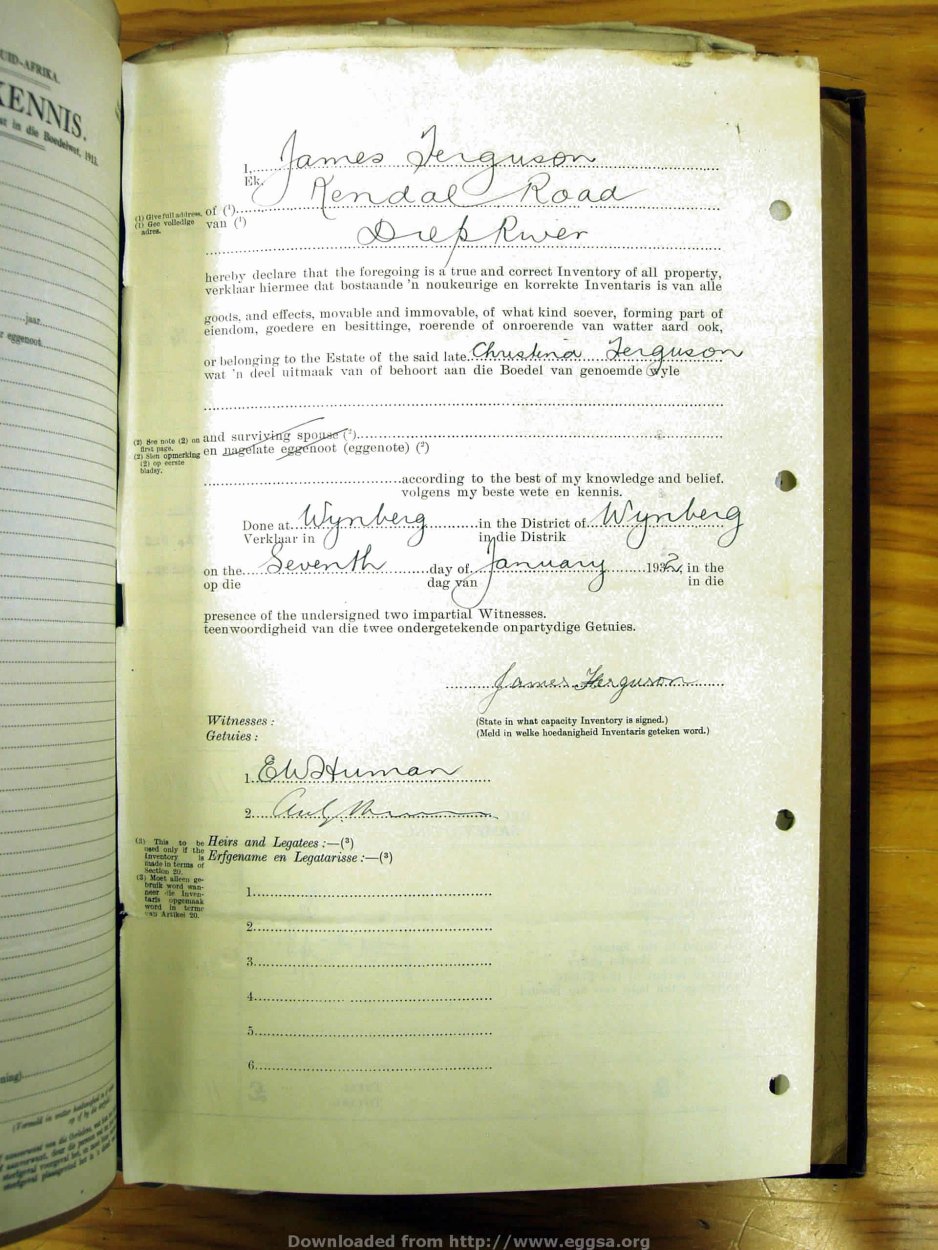 UID-AFRIKA.
KENNIS.
in die Boedelwet, 1913.
jaar
r eggenoot
ning)
I, James Ferguson
Ek,
(1) Give full address. of (¹) Kendal Road
(1) Gee volledige adres. van (¹)
Diep River
hereby declare that the foregoing is a true and correct Inventory of all property,
verklaar hiermee dat bostaande 'n noukeurige en korrekte Inventaris is van alle
goods, and effects, movable and immovable, of what kind soever, forming part of
eiendom, goedere en besittinge, roerende of onroerende van watter aard ook,
or belonging to the Estate of the said late Christina Ferguson
wat 'n deel uitmaak van of behoort aan die Boedel van genoemde wyle
(2) See note (2) on first page. and surviving spouse (²)
(2) Sien opmerking (2) op eerste bladsy. en nagelate eggenoot (eggenote) (²)
according to the best of my knowledge and belief.
volgens my beste wete en kennis.
Done at Wynberg in the District of Wynberg
Verklaar in in die Distrik
on the Seventh day of January 1932, in the
op die dag van in die
presence of the undersigned two impartial Witnesses.
teenwoordigheid van die twee ondergetekende onpartydige Getuies.
James Ferguson
Witnesses : (State in what capacity Inventory is signed.)
Getuies : (Meld in welke hoedanigheid Inventaris geteken word.)
1. E W Human
2.
(3) This to be used only if the Inventory is made in terms of Section 20.
Heirs and Legatees :—(³)
Erfgename en Legatarisse :—(³)
(3) Moet alleen gebruik word wanneer die Inventaris opgemaak word in terme van Artikel 20.
1.
2.
3.
4.
5.
6.
Downloaded from http://www.eggsa.org